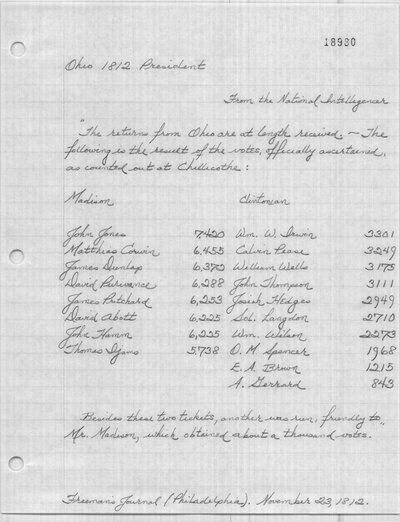 18980
Ohio 1812 President
From the National Intelligencer
"The returns from Ohio are at length received. — The
following is the result of the votes, officially ascertained,
as counted out at Chillicothe:
Madison Clintonian
John Jones 7,420 Wm. W. Irwin 3301
Matthias Corwin 6,455 Calvin Pease 3249
James Dunlap 6,372 William Wells 3175
David Purviance 6,288 John Thompson 3111
James Pritchard 6,253 Josiah Hedges 2949
David Abott 6,225 Sol. Langdon 2710
John Hamm 6,225 Wm. Wilson 2273
Thomas Ijams 5,738 O. M Spencer 1968
E. A. Brown 1215
A. Gerrard 843
Besides these two tickets, another was run, friendly to
Mr. Madison, which obtained about a thousand votes."
Freeman's Journal (Philadelphia). November 23, 1812.